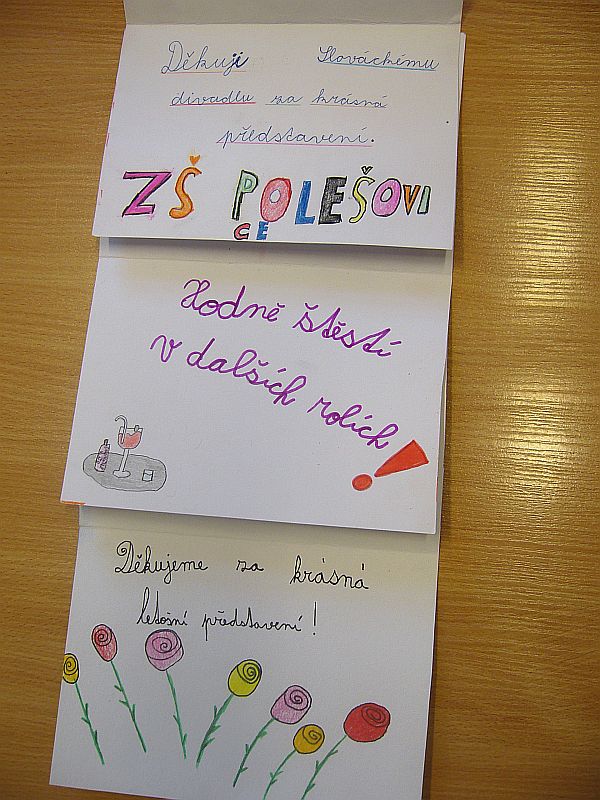 Děkuji Slováckému
divadlu za krásná
představení.
ZŠ POLEŠOVI
CE
Hodně štěstí
v dalších rolích!
Děkujeme za krásná
letošní představení!